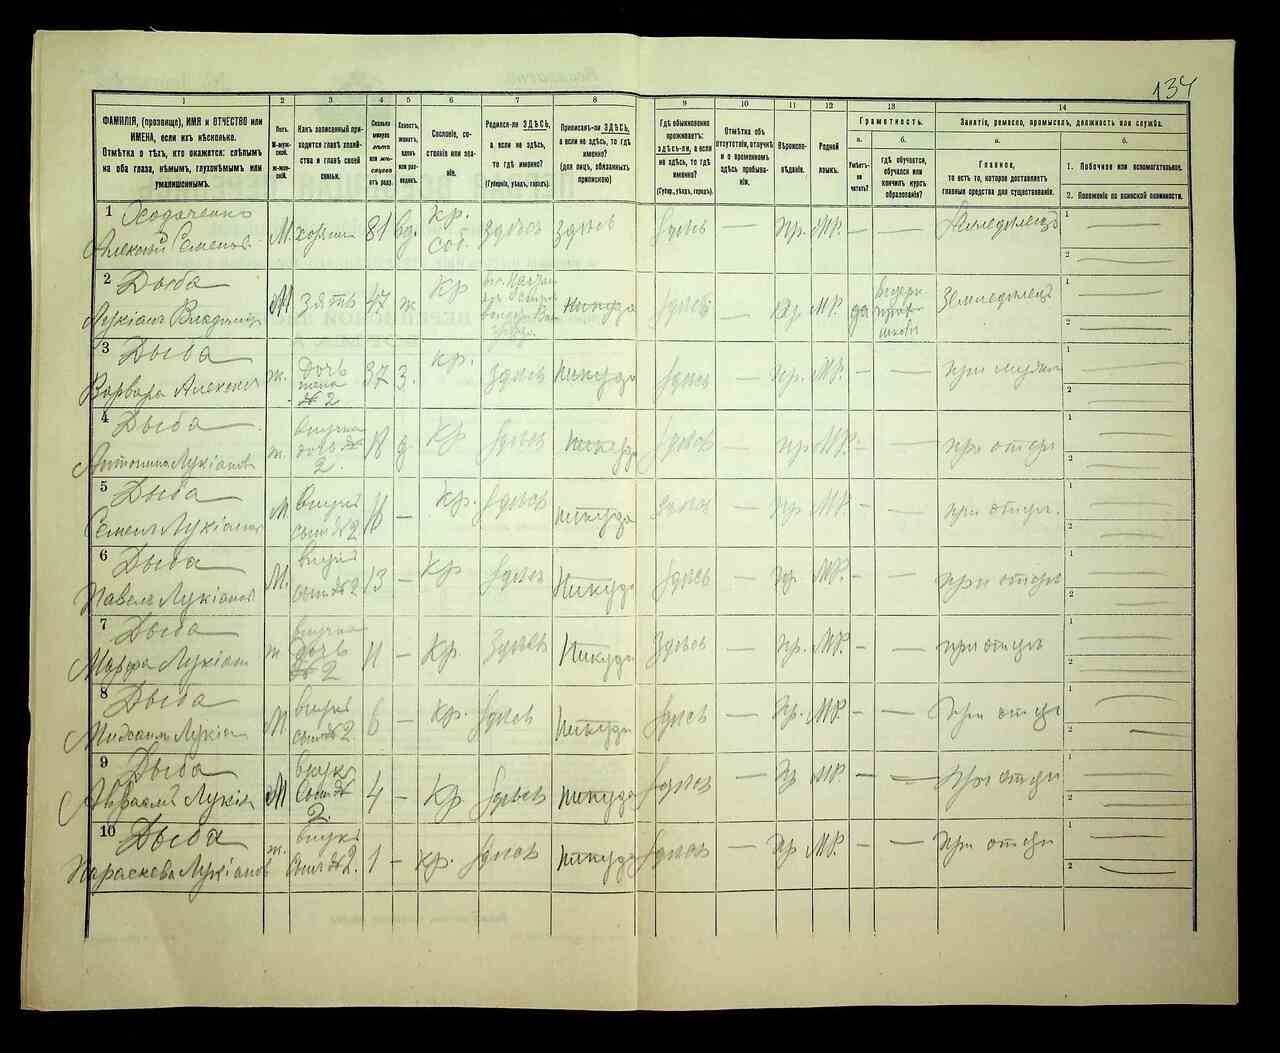 134
1
2
3
4
5
6
7
8
9
10
11
12
13
14
ФАМИЛІЯ, (прозвище), ИМЯ и ОТЧЕСТВО или
ИМЕНА, если ихъ нѣсколько.
Отмѣтка о тѣхъ, кто окажется: слѣпымъ
на оба глаза, нѣмымъ, глухонѣмымъ или
умалишеннымъ.
Полъ.
М-муж-
ской.
Ж-жен-
скій.
Какъ записанный при-
ходится главѣ хозяй-
ства и главѣ своей
семьи.
Сколько
минуло
лѣтъ
или мѣ-
сяцевъ
отъ роду.
Холостъ,
женатъ,
вдовъ
или раз-
веденъ.
Сословіе, со-
стояніе или зва-
ніе.
Родился-ли ЗДѢСЬ,
а если не здѣсь,
то гдѣ именно?
(Губернія, уѣздъ, городъ).
Приписанъ-ли ЗДѢСЬ,
а если не здѣсь, то гдѣ
именно?
(для лицъ, обязанныхъ
припискою)
Гдѣ обыкновенно
проживаетъ:
здѣсь-ли, а если
не здѣсь, то гдѣ
именно?
(Губер., уѣздъ, городъ).
Отмѣтка объ
отсутствіи, отлучкѣ
и о временномъ
здѣсь пребыва-
ніи.
Вѣроиспо-
вѣданіе.
Родной
языкъ.
Грамотность.
а.
Умѣетъ-
ли
читать?
б.
гдѣ обучается,
обучался или
кончилъ курсъ
образованія?
Занятіе, ремесло, промыселъ, должность или служба.
а.
Главное,
то есть то, которое доставляетъ
главныя средства для существованія.
б.
1. Побочное или вспомогательное.
2. Положеніе по воинской повинности.
1 Осадаченко
Алексѣй Семенов.
М хозяин 81 вд. Кр. соб. здѣсь здѣсь здѣсь — Пр. МР. — — Земледѣлецъ
1
2
2 Дыба
Лукіанъ Владимір
М зять 47 ж Кр никуда здѣсь — Пр МР. да Земледѣлецъ
1
2
3 Дыба
Варвара Алексѣев
ж. дочь жена № 2 37 з. кр. здѣсь никуда здѣсь — Пр. МР. — — при мужѣ
1
2
4 Дыба
Антонина Лукіанов
ж. внучка дочь № 2. 18 д. Кр здѣсь никуда здѣсь — пр МР. — — при отцѣ
1
2
5 Дыба
Семенъ Лукіанов
М. внукъ сынъ № 2 — Кр. здѣсь никуда здѣсь — Пр МР. — — при отцѣ.
1
2
6 Дыба
Павелъ Лукіанов
М. внукъ сынъ № 2 13 — Кр здѣсь никуда здѣсь — Пр. МР. — — при отцѣ
1
2
7 Дыба
Марфа Лукіан
ж внучка дочь № 2 11 — Кр. здѣсь никуда здѣсь — пр. МР. — — при отцѣ
1
2
8 Дыба
Михаилъ Лукіан
М. внукъ сынъ № 2 6 — Кр. здѣсь никуда здѣсь — Пр. МР. — — при отцѣ
1
2
9 Дыба
Авраамъ Лукіан
М внукъ сынъ № 2. 4 — Кр здѣсь никуда здѣсь — Пр МР — — При отцѣ
1
2
10 Дыба
Параскева Лукіанов
ж. внукъ сынъ № 2. 1 — кр. здѣсь никуда здѣсь — Пр МР. — — При отцѣ
1
2